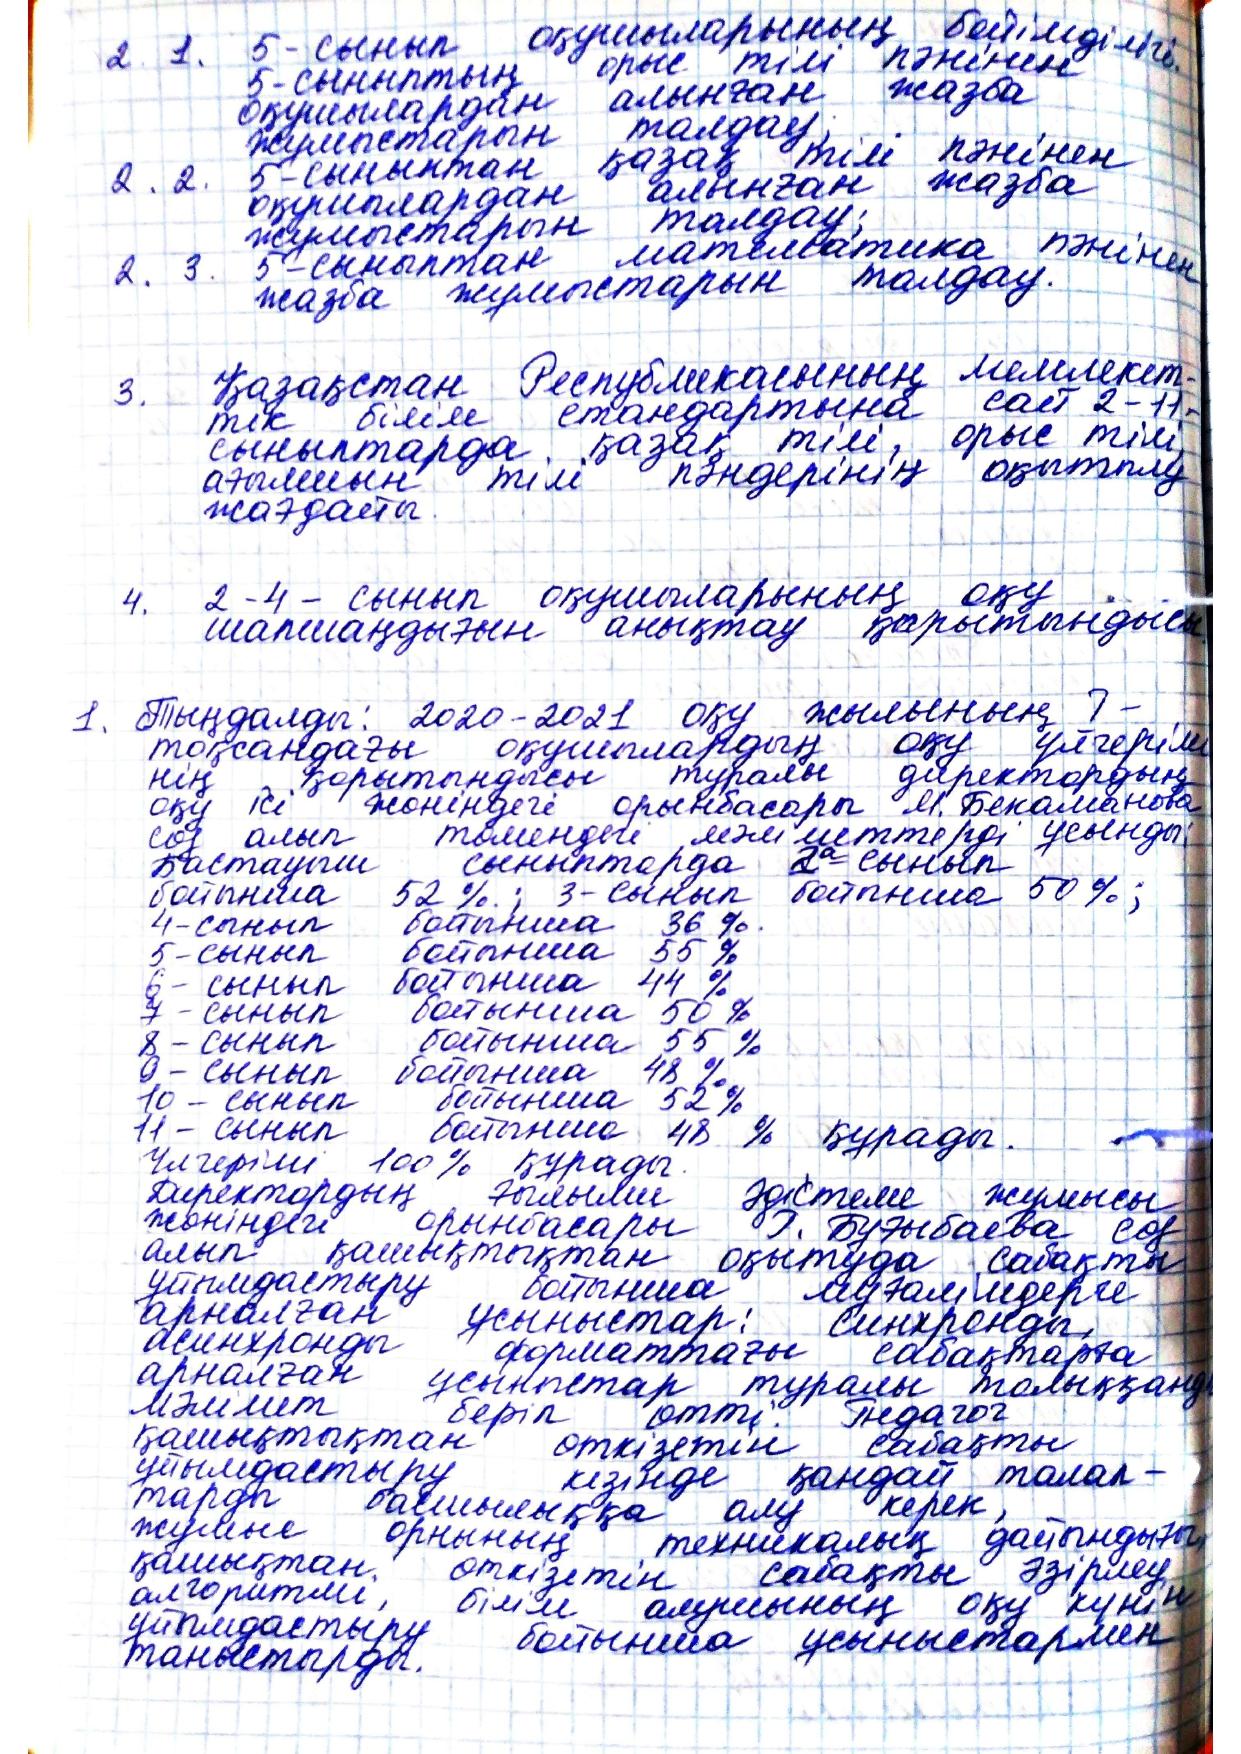 2. 1. 5-сынып оқушыларының бейімділігі.
5-сыныптың орыс тілі пәнінен
оқушылардан алынған жазба
жұмыстарын талдау;
2. 2. 5-сыныптан қазақ тілі пәнінен
оқушылардан алынған жазба
жұмыстарын талдау;
2. 3. 5-сыныптан математика пәнінен
жазба жұмыстарын талдау.
3. Қазақстан Республикасының мемлекет-
тік білім стандартына сай 2-11-
сыныптарда қазақ тілі, орыс тілі,
ағылшын тілі пәндерінің оқытылу
жағдайы.
4. 2-4- сынып оқушыларының оқу
шапшаңдығын анықтау қорытындысы.
1. Тыңдалды: 2020-2021 оқу жылының I-
тоқсандағы оқушылардың оқу үлгерімі
нің қорытындысы туралы директордың
оқу ісі жөніндегі орынбасары М. Бекаманова
сөз алып төмендегі мәліметтерді ұсынды:
Бастауыш сыныптарда 2ᵃ-сынып
бойынша 52 %.; 3-сынып бойынша 50 %;
4-сынып бойынша 36 %.
5-сынып бойынша 55 %
6-сынып бойынша 44 %
7-сынып бойынша 50 %
8-сынып бойынша 55 %
9-сынып бойынша 48 %
10-сынып бойынша 52 %
11-сынып бойынша 48 % құрады.
Үлгерімі 100% құрады.
Директордың ғылыми әдістеме жұмысы
жөніндегі орынбасары Г. Бұғыбаева сөз
алып қашықтықтан оқытуда сабақты
ұйымдастыру бойынша мұғалімдерге
арналған ұсыныстар: синхронды,
асинхронды форматтағы сабақтарға
арналған ұсыныстар туралы толыққанды
мәлімет беріп өтті. Педагог
қашықтықтан өткізетін сабақты
ұйымдастыру кезінде қандай талап-
тарды басшылыққа алу керек,
жұмыс орнының техникалық дайындығы,
қашықтан өткізетін сабақты әзірлеу
алгоритмі, білім алушының оқу күнін
ұйымдастыру бойынша ұсыныстармен
таныстырды.